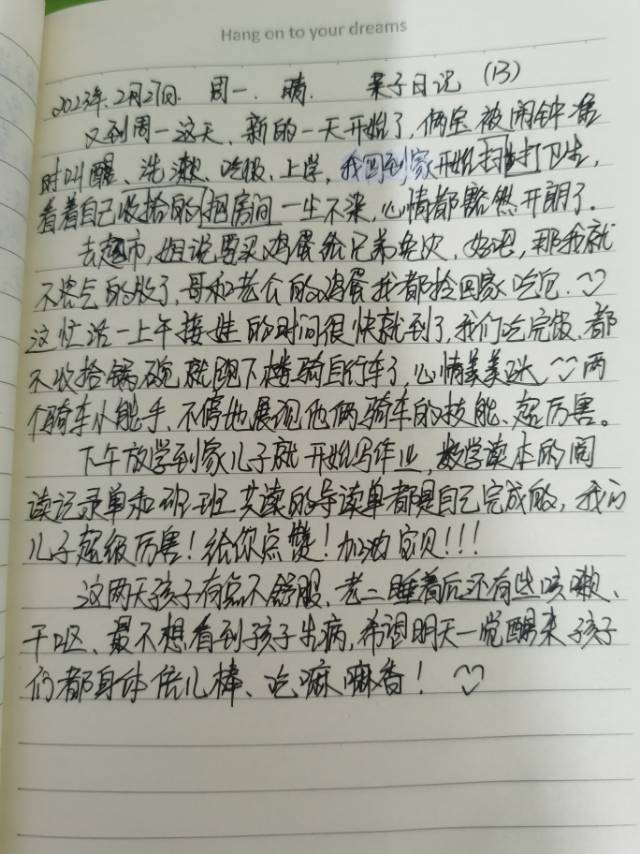 Hang on to your dreams
2023年.2月27日. 周一. 晴. 亲子日记 (13)
又到周一这天、新的一天开始了,俩宝被闹钟准
时叫醒、洗漱、吃饭、上学,我回到家开始打卫生,
看着自己收拾的房间一尘不染,心情都豁然开朗了。
去超市,姐说要买鸡蛋给兄弟,好吧,那我就
不客气的收了,哥和老公的鸡蛋我都拎回家吃它.
这忙活一上午接娃的时间很快就到了,我们吃完饭、都
不收拾锅碗就跑下楼骑自行车了,心情美美哒 两
个骑车小能手,不停地展现他俩骑车的技能、超厉害。
下午放学到家儿子就开始写作业,数学读本的阅
读记录单和班班共读的导读单都是自己完成的,我的
儿子超级厉害!给你点赞!加油宝贝!!!
这两天孩子有点不舒服、老二睡着后还有些咳嗽、
干呕、最不想看到孩子生病,希望明天一觉醒来孩子
们都身体倍儿棒、吃嘛嘛香!